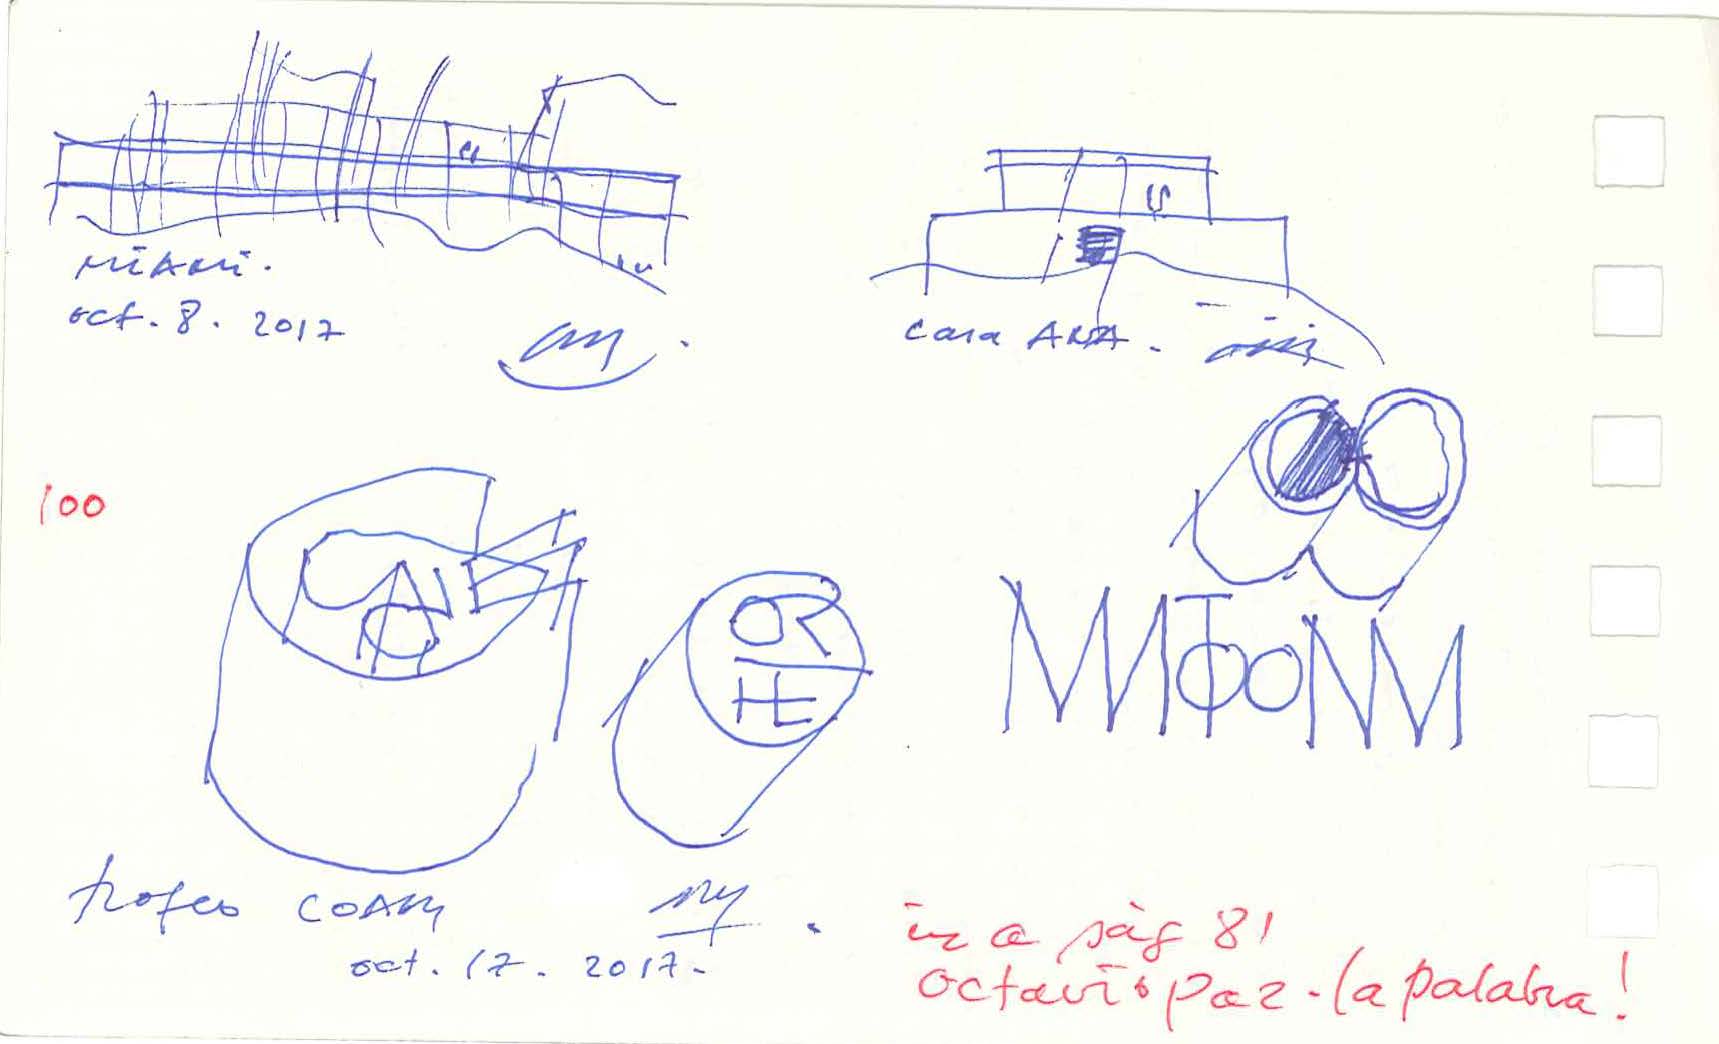 MIAMI.
oct. 8. 2017
casa ANA.
100
OR
HE
trofeo COAM
oct. 17. 2017.
ir a pág 81
octavio paz - la palabra!